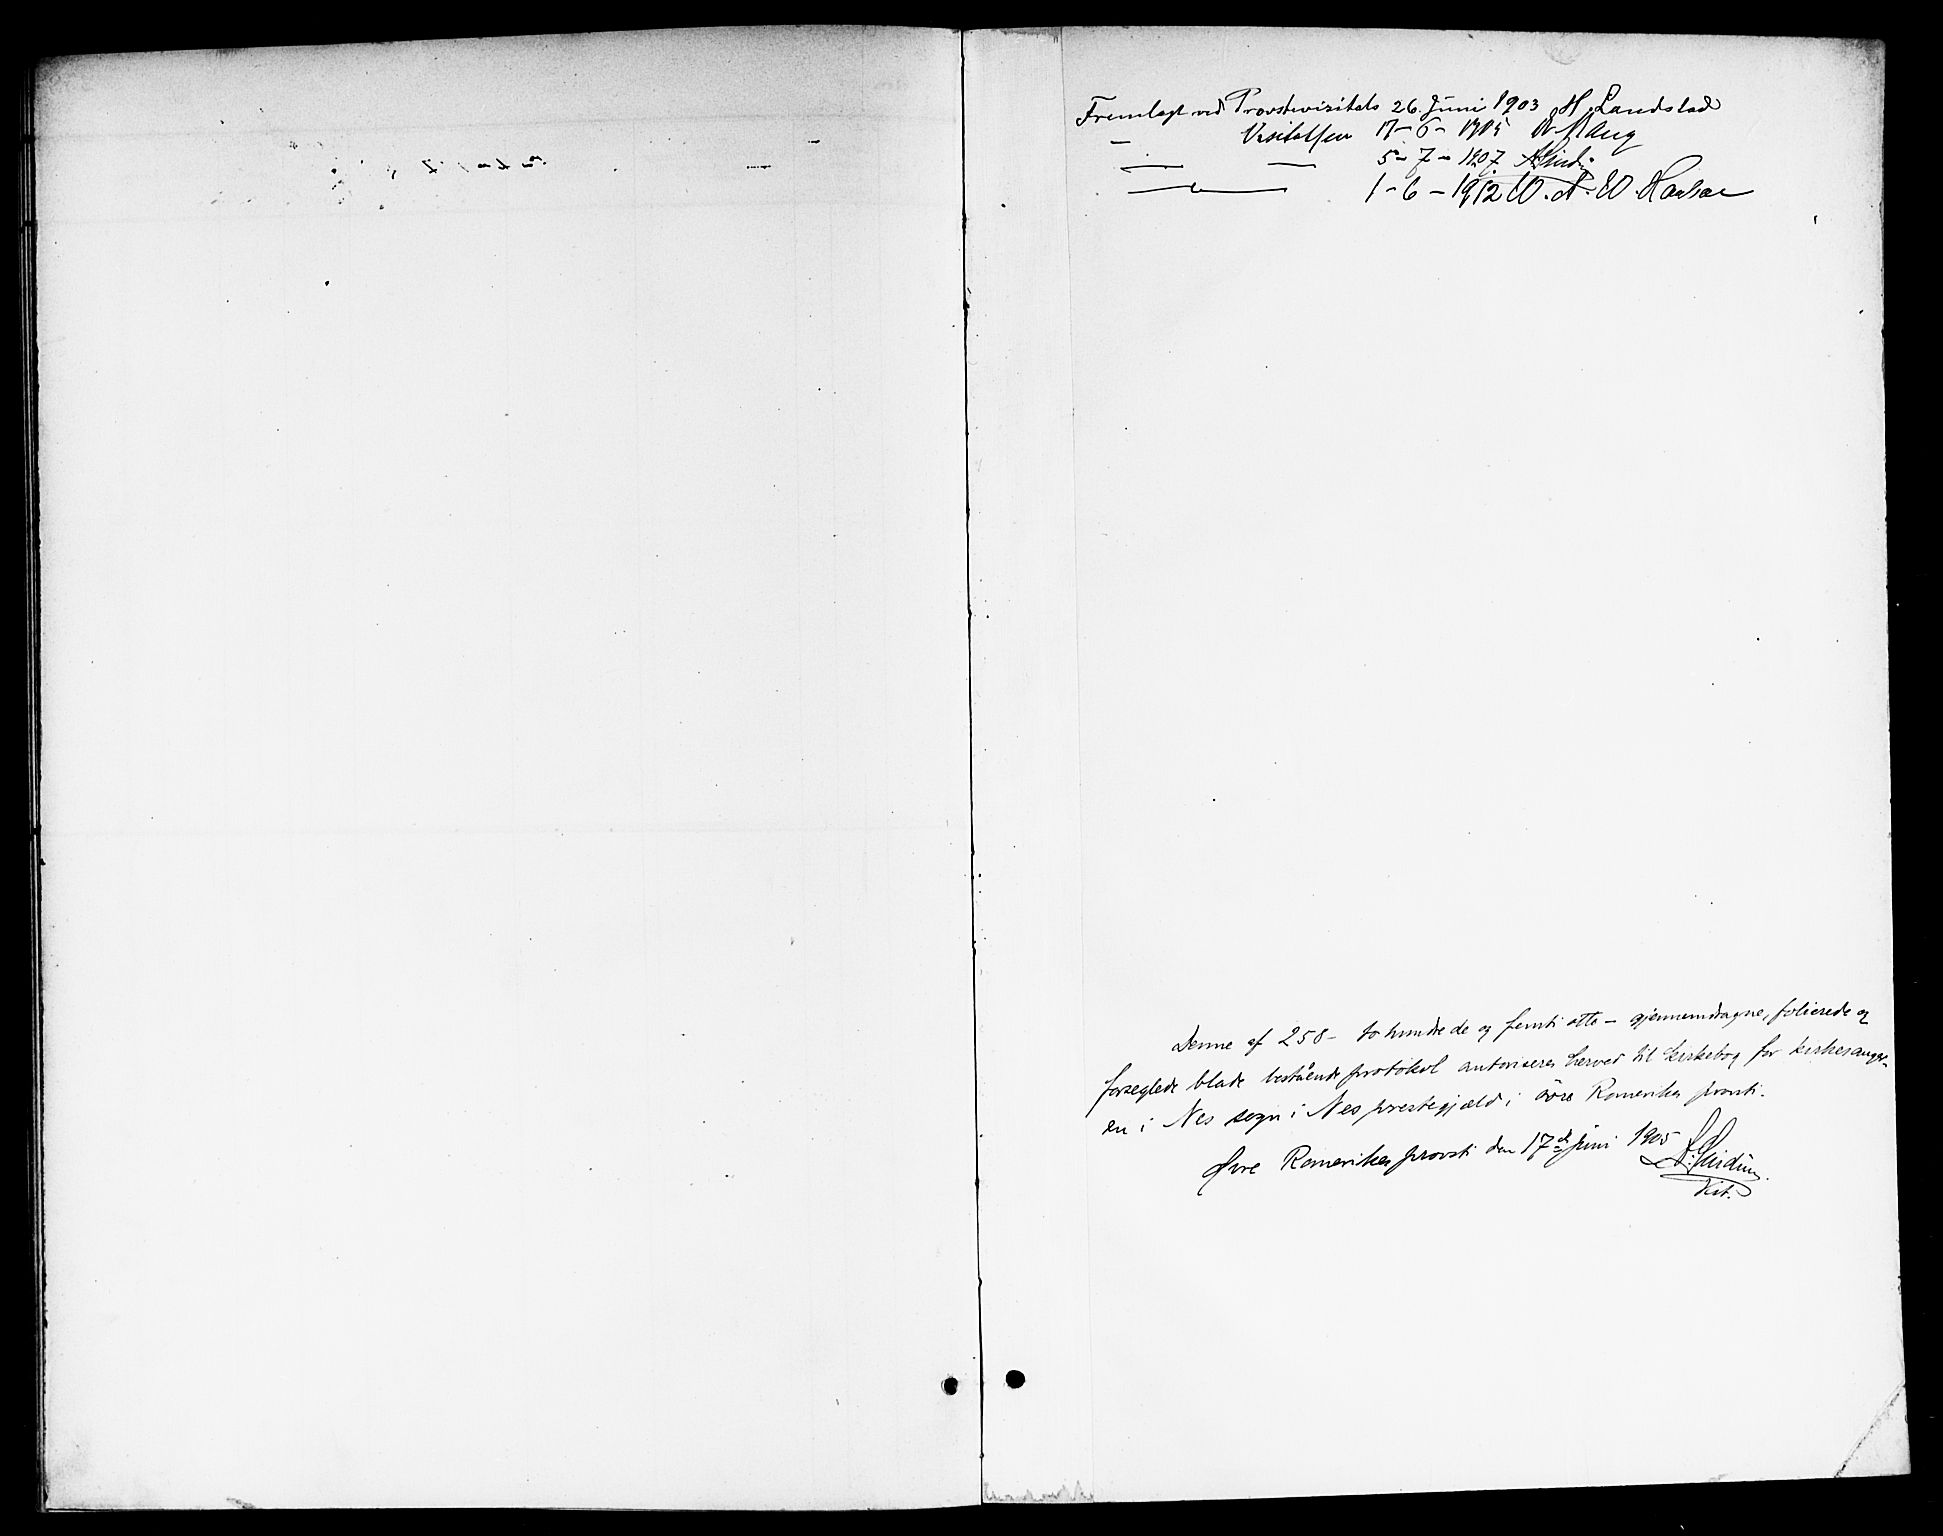 Fremlagt ved Provstevisitats 26. Juni 1903 H. Landstad
— Visitatsen 17-6-1905
— — 5-7-1907
— 1-6-1912 W. A. W. Hansen
Denne af 258 - to hundrede og femti otte - gjennemdragne, folierede og
forseglede blade bestående protokol autoriseres herved til kirkebog for kirkesanger-
en i Nes sogn i Nes prestegjæld i øvre Romerikes provsti.
Øvre Romerikes provsti den 17de juni 1905